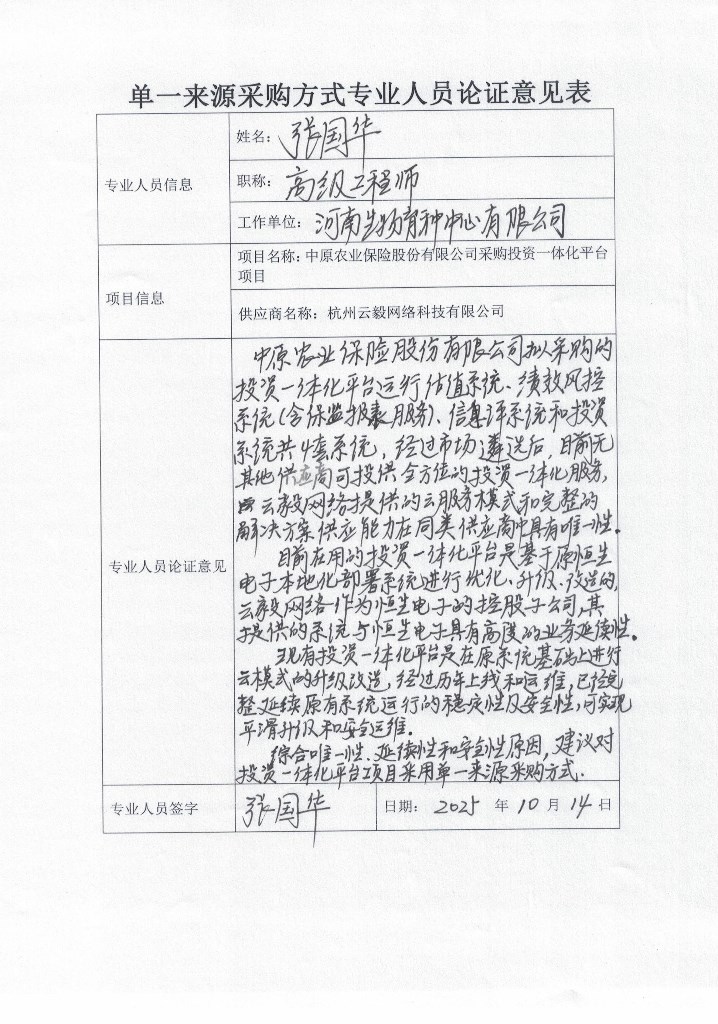 单一来源采购方式专业人员论证意见表
专业人员信息
姓名：张国华
职称：高级工程师
工作单位：河南生物育种中心有限公司
项目信息
项目名称：中原农业保险股份有限公司采购投资一体化平台
项目
供应商名称：杭州云毅网络科技有限公司
专业人员论证意见
中原农业保险股份有限公司拟采购的
投资一体化平台运行估值系统、绩效风控
系统（含保监报表服务）、信息评系统和投资
系统共4套系统，经过市场遴选后，目前无
其他供应商可投供全方位的投资一体化服务，
云毅网络提供的云服务模式和完整的
解决方案供应能力在同类供应商中具有唯一性。
目前在用的投资一体化平台是基于原恒生
电子本地化部署系统进行优化、升级、改造的，
云毅网络作为恒生电子的控股子公司，其
提供的系统与恒生电子具有高度的业务延续性。
现有投资一体化平台是在原系统基础上进行
云模式的升级改造，经过历年上线和运维，已经完
整延续原有系统运行的稳定性及安全性，可实现
平滑升级和安全运维。
综合唯一性、延续性和安全性原因，建议对
投资一体化平台项目采用单一来源采购方式.
专业人员签字
张国华
日期：2025 年 10 月 14 日